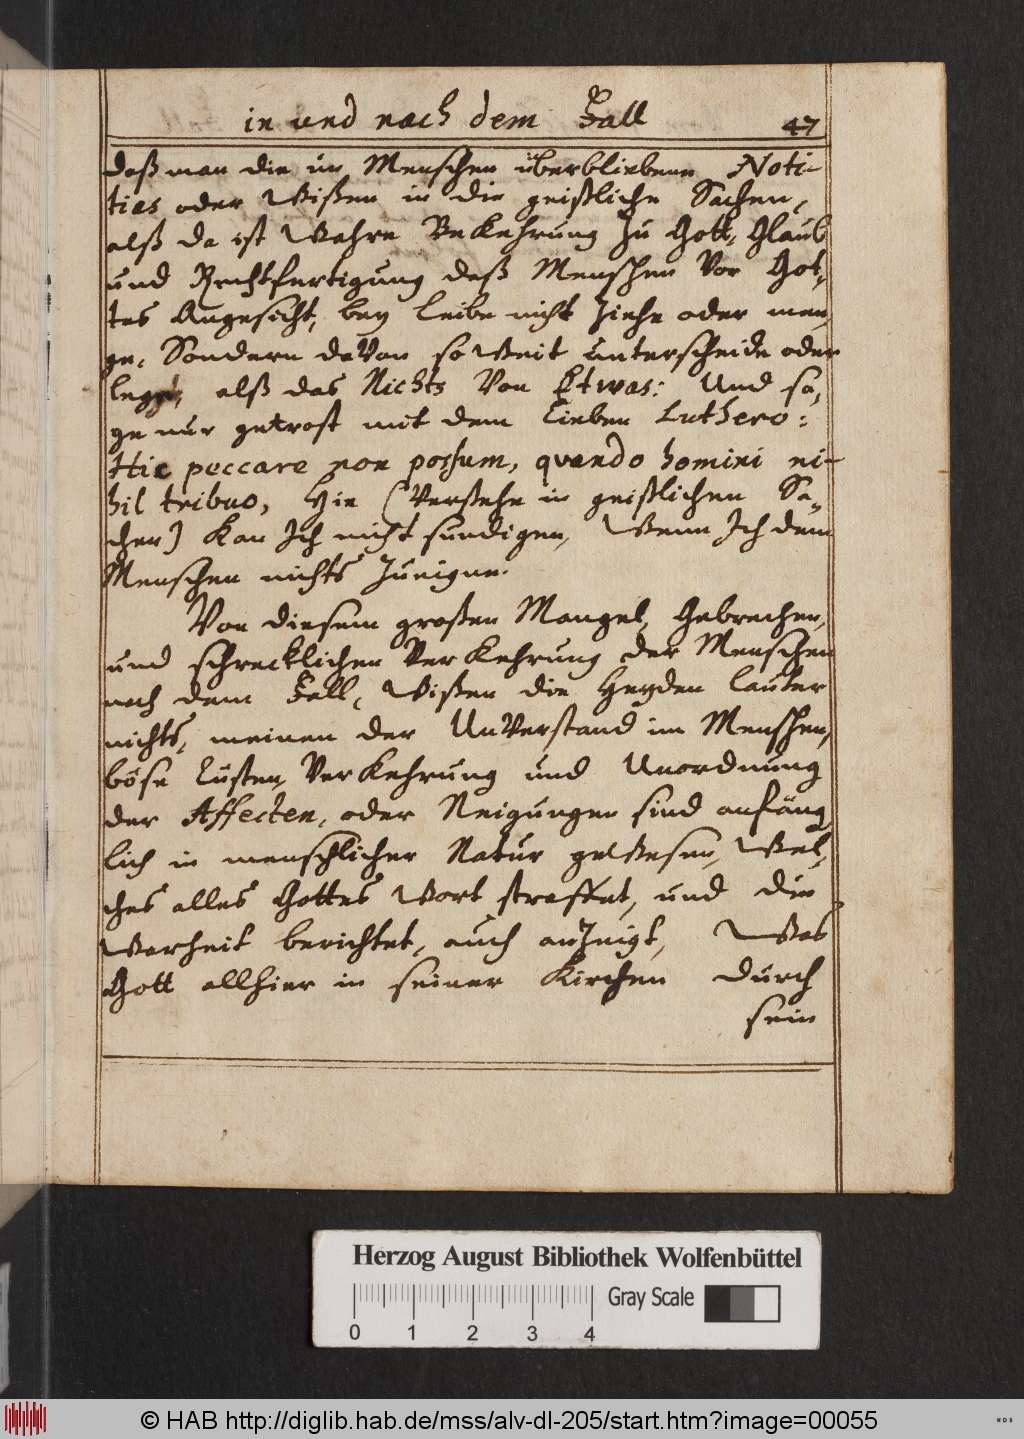 in und nach dem Fall 47
daß man die im Menschen überbliebene Noti-
tias oder Wißen in die geistliche Sachen,
alß da ist Wahre Bekehrung zu Gott, Glaub
und Rechtfertigung deß Menschen Vor Got,
tes Angesicht, bey leibe nicht ziehe oder men,
ge, Sondern daVon so Weit unterscheide oder
lege, alß das Nichts Von Etwas: Und sa,
ge nur getrost mit dem lieben Luthero:
Hic peccare non possum, quando homini ni-
hil tribuo, Hie (Verstehe in geistlichen Sa,
chen) Kan Ich nicht sundigen, Wenn Ich dem
Menschen nichts Zueigne.
Von diesem großen Mangel, Gebrechen,
und schrecklichen VerKehrung der Menschen
nach dem Fall, Wißen die Heyden lauter
nichts, meinen der UnVerstand im Menschen,
böse lüsten, VerKehrung und Unordnung
der Affecten, oder Neigungen sind anfäng,
lich in menschlicher Natur geWesen, Wel,
ches alles Gottes Wort straffet, und die
Warheit berichtet, auch anzeigt, Was
Gott allhier in seiner Kirchen durch
sein
Herzog August Bibliothek Wolfenbüttel
Gray Scale
0 1 2 3 4
© HAB http://diglib.hab.de/mss/alv-dl-205/start.htm?image=00055